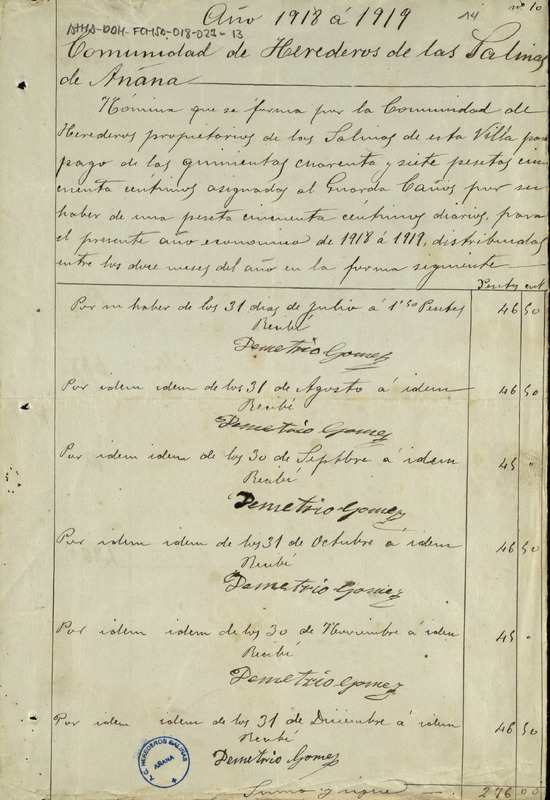 nº 10
Año 1918 á 1919
14
AHHA-DOH-FCHSA-018-021-13
Comunidad de Herederos de las Salinas
de Añana
Nómina que se forma por la Comunidad de
Herederos propietarios de las Salinas de esta Villa para
pago de las quinientas cuarenta y siete pesetas cin-
cuenta céntimos asignadas al Guarda Caños por su
haber de una peseta cincuenta céntimos diarios, para
el presente año económico de 1918 á 1919, distribuidas
entre los doce meses del año en la forma siguiente
Pesetas cent
Por su haber de los 31 dias de Julio á 1'50 Pesetas 46 50
Recibí
Demetrio Gomez
Por idem idem de los 31 de Agosto á idem 46 50
Recibí
Demetrio Gomez
Por idem idem de los 30 de Septbre á idem 45 "
Recibí
Demetrio Gomez
Por idem idem de los 31 de Octubre á idem 46 50
Recibí
Demetrio Gomez
Por idem idem de los 30 de Noviembre á idem 45 "
Recibí
Demetrio Gomez
Por idem idem de los 31 de Diciembre á idem 46 50
Recibí
Demetrio Gomez
C. HEREDEROS SALINAS
AÑANA
Suma y sigue 276 00